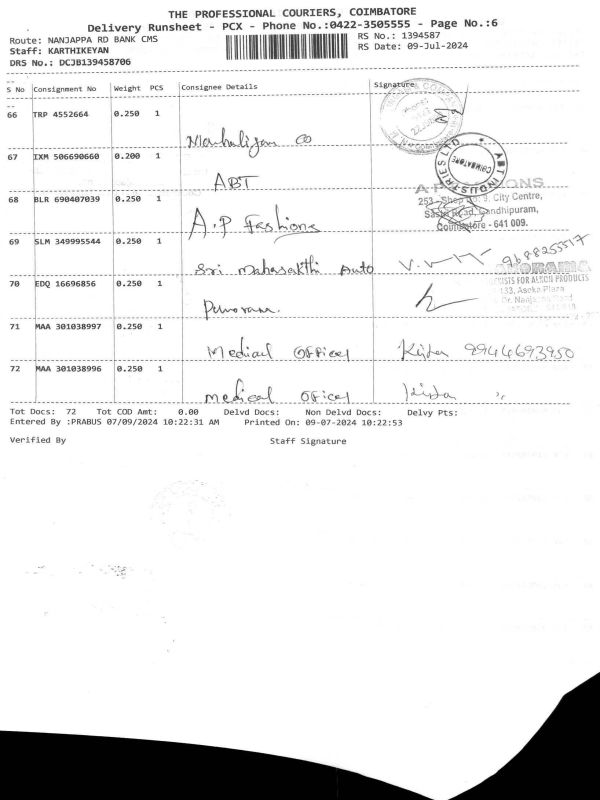 THE PROFESSIONAL COURIERS, COIMBATORE
Delivery Runsheet - PCX - Phone No.:0422-3505555 - Page No.:6
Route: NANJAPPA RD BANK CMS
RS No.: 1394587
Staff: KARTHIKEYAN
RS Date: 09-Jul-2024
DRS No.: DCJB139458706
S No Consignment No Weight PCS Consignee Details Signature
66 TRP 4552664 0.250 1
67 IXM 506690660 0.200 1
ABT
ABT INDUSTRIES LTD
COIMBATORE
68 BLR 690407039 0.250 1
A.P Fashions
253 - Shop No: 9, City Centre,
Sastri Road, Gandhipuram,
Coimbatore - 641 009.
69 SLM 349995544 0.250 1
Sri Mahasakthi Auto
70 EDQ 16696856 0.250 1
133, Asoka Plaza
71 MAA 301038997 0.250 1
Medical Officer 9944693950
72 MAA 301038996 0.250 1
Medical Officer
Tot Docs: 72 Tot COD Amt: 0.00 Delvd Docs: Non Delvd Docs: Delvy Pts:
Entered By :PRABUS 07/09/2024 10:22:31 AM Printed On: 09-07-2024 10:22:53
Verified By Staff Signature